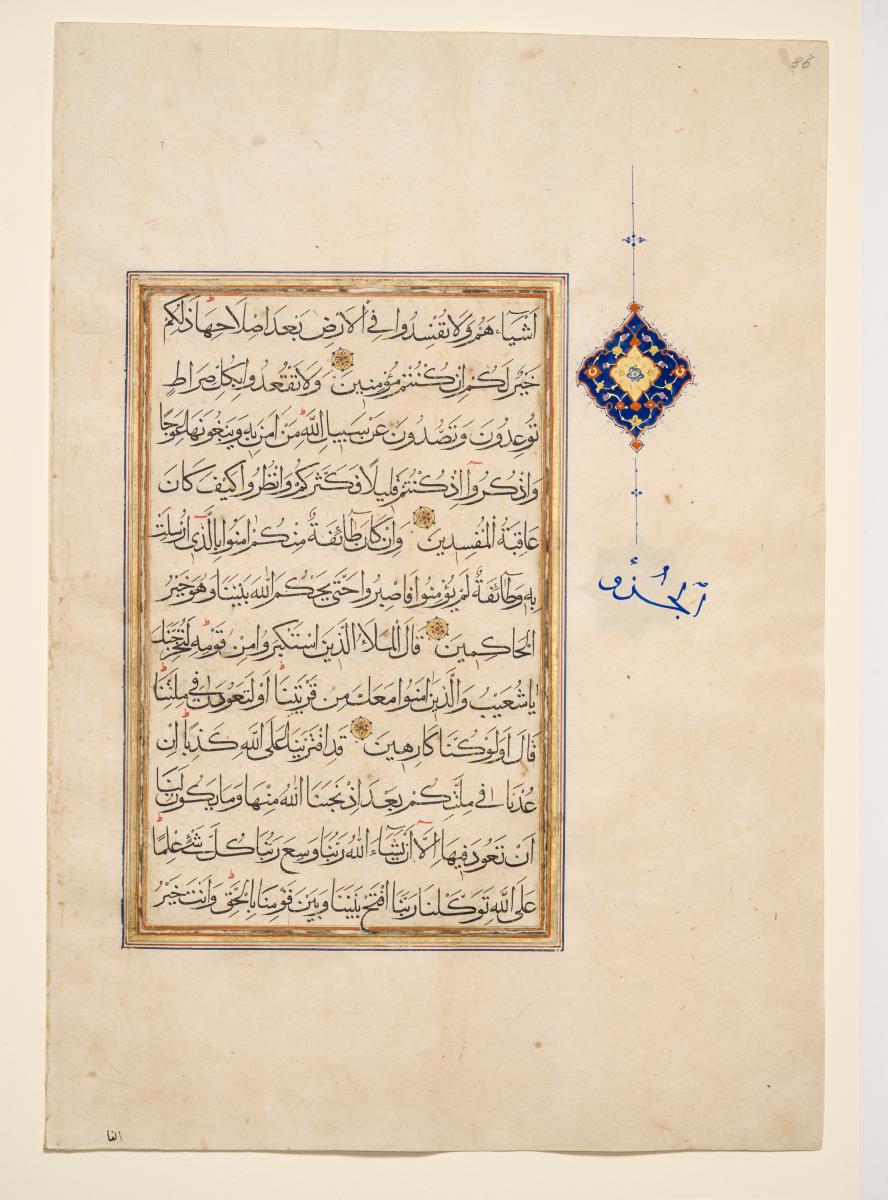 86
أَشْيَآءَهُمْ وَلَا تُفْسِدُوا فِي الْأَرْضِ بَعْدَ اِصْلَاحِهَا ذَلِكُمْ
خَيْرٌ لَكُمْ اِنْ كُنْتُمْ مُؤْمِنِينَ وَلَا تَقْعُدُوا بِكُلِّ صِرَاطٍ
تُوعِدُونَ وَتَصُدُّونَ عَنْ سَبِيلِ اللَّهِ مَنْ اٰمَنَ بِهِ وَيَبْغُونَهَا عِوَجًا
وَاذْكُرُوا اِذْ كُنْتُمْ قَلِيلًا فَكَثَّرَكُمْ وَانْظُرُوا كَيْفَ كَانَ
عَاقِبَةُ الْمُفْسِدِينَ وَاِنْ كَانَ طَآئِفَةٌ مِنْكُمْ اٰمَنُوا بِالَّذِي اُرْسِلْتُ
بِهِ وَطَآئِفَةٌ لَمْ يُؤْمِنُوا فَاصْبِرُوا حَتَّى يَحْكُمَ اللَّهُ بَيْنَنَا وَهُوَ خَيْرُ
الْحَاكِمِينَ قَالَ الْمَلَاُ الَّذِينَ اسْتَكْبَرُوا مِنْ قَوْمِهِ لَنُخْرِجَنَّكَ
يَا شُعَيْبُ وَالَّذِينَ اٰمَنُوا مَعَكَ مِنْ قَرْيَتِنَا اَوْ لَتَعُودُنَّ فِي مِلَّتِنَا
قَالَ اَوَلَوْ كُنَّا كَارِهِينَ قَدِ افْتَرَيْنَا عَلَى اللَّهِ كَذِبًا اِنْ
عُدْنَا فِي مِلَّتِكُمْ بَعْدَ اِذْ نَجّٰنَا اللَّهُ مِنْهَا وَمَا يَكُونُ لَنَا
اَنْ نَعُودَ فِيهَا اِلَّا اَنْ يَشَآءَ اللَّهُ رَبُّنَا وَسِعَ رَبُّنَا كُلَّ شَيْءٍ عِلْمًا
عَلَى اللَّهِ تَوَكَّلْنَا رَبَّنَا افْتَحْ بَيْنَنَا وَبَيْنَ قَوْمِنَا بِالْحَقِّ وَاَنْتَ خَيْرُ
اَلْجُزْؤُ
الفا